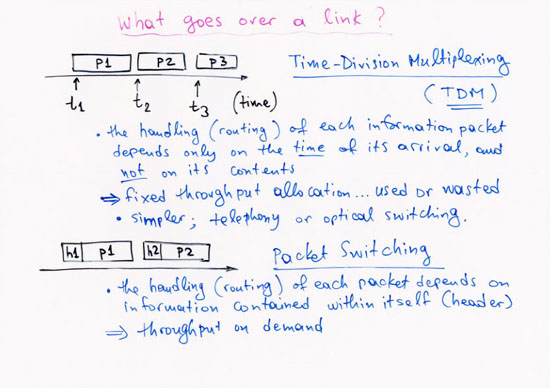 What goes over a link?
P1 P2 P3
t1 t2 t3 (time)
Time-Division Multiplexing
(TDM)
• the handling (routing) of each information packet
depends only on the time of its arrival, and
not on its contents
⇒ fixed throughput allocation... used or wasted
• simpler; telephony or optical switching.
h1 P1 h2 P2
Packet Switching
• the handling (routing) of each packet depends on
information contained within itself (header)
⇒ throughput on demand